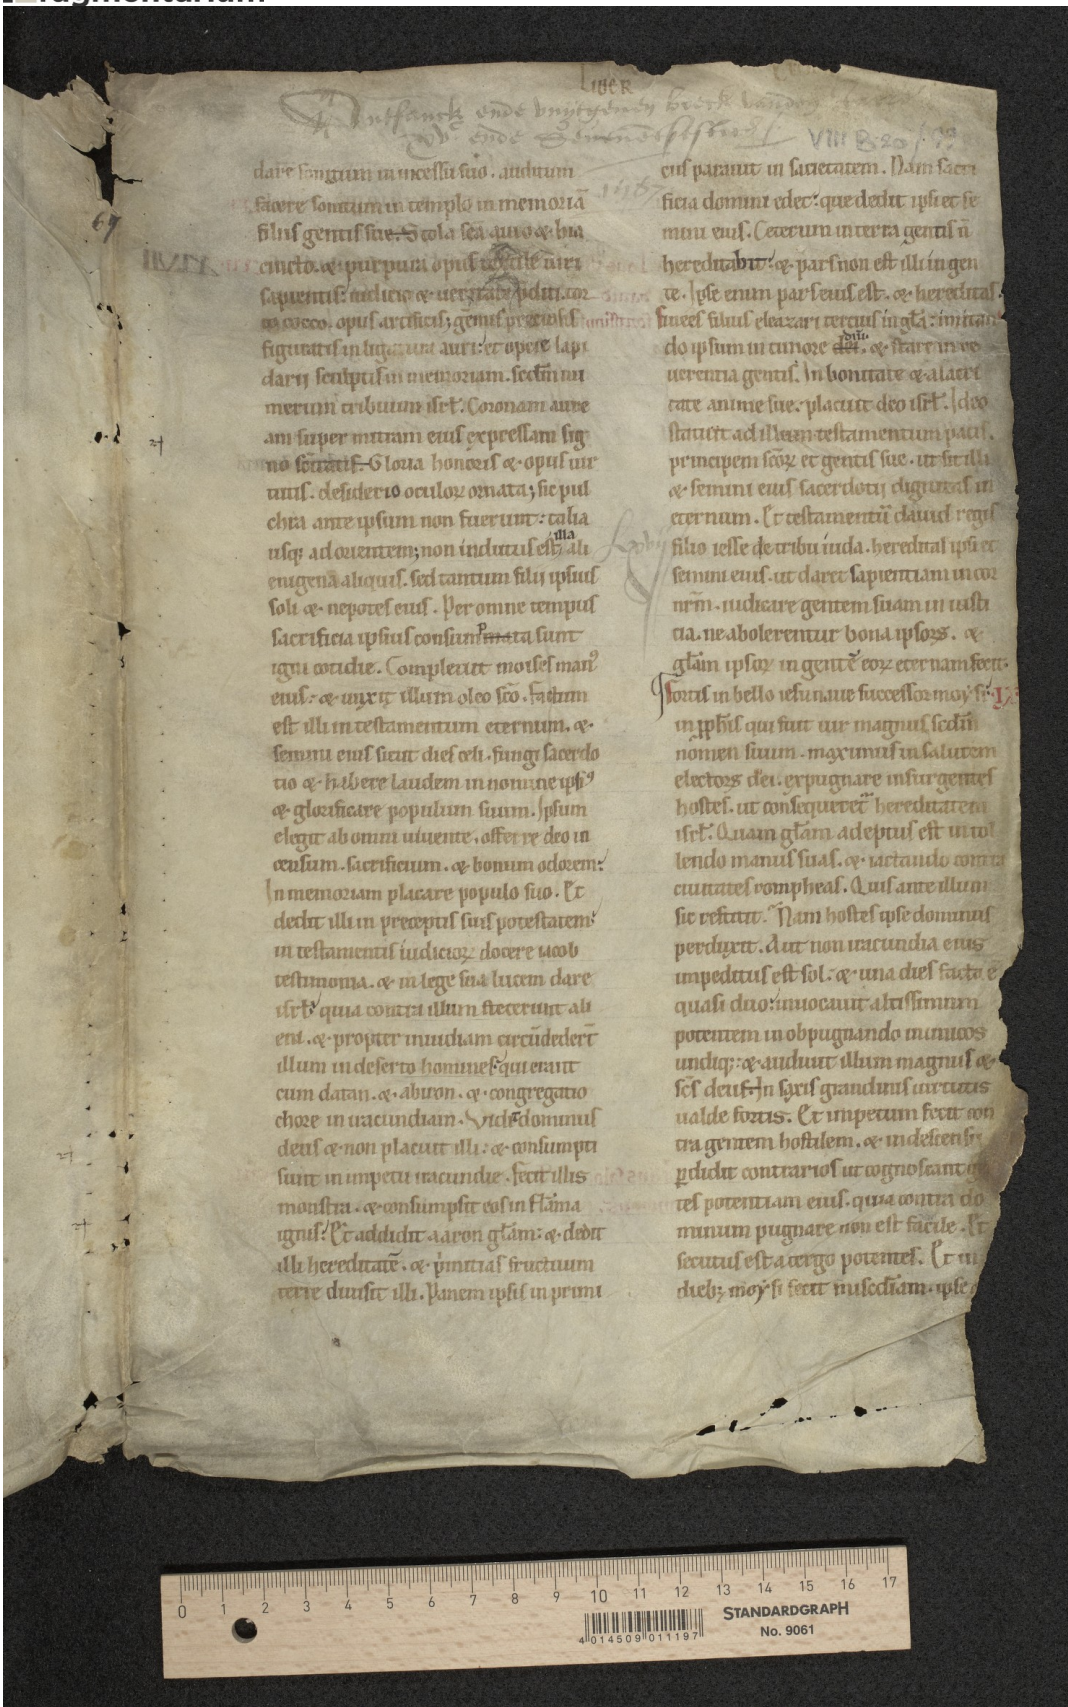 Liber
Ontfanck ende vuytgeven
xvc ende
VIII B 20
69
dare sonitum in incessu suo. auditum
facere sonitum in templo in memoriā
filiis gentis sue. Stola scā auro & hia
cincto. & purpura opus textile uiri
sapientis: iudicio & ueritate p̄diti. tor
to cocco. opus artificis; gemis preciosis
figuratis in ligatura auri: et opere lapi
darii sculptis in memoriam. scdm nu
merum tribuum isrl̄. Coronam aure
am super mitram eius expressam sig
no sc̄itatis. Gloria honoris & opus uir
tutis. desiderio oculoꝝ ornata; sic pul
chra ante ipsum non fuerunt: talia
usqꝫ ad orientem; non indutus est illa ali
enigena aliquis. sed tantum filii ipsius
soli & nepotes eius. Per omne tempus
sacrificia ipsius consumpta sunt
igni cotidie. Compleuit moises manꝰ
eius: & unxit illum oleo sc̄o. factum
est illi in testamentum eternum. &
semini eius sicut dies celi. fungi sacerdo
tio & habere laudem in nomine ipsiꝰ
& glorificare populum suum. Ipsum
elegit ab omni uiuente. offerre deo in
censum. sacrificium. & bonum odorem:
In memoriam placare populo suo. Et
dedit illi in preceptis suis potestatem
in testamentis iudicioꝝ docere iacob
testimonia. & in lege sua lucem dare
isrl̄. quia contra illum steterunt ali
eni. & propter inuidiam circūdedert̄
illum in deserto homines. qui erant
cum datan. & abiron. & congregatio
chore in iracundiam. Vidit dominus
deus & non placuit illi: & consumpti
sunt in impetu iracundie. fecit illis
monstra. & consumpsit eos in flāma
ignis. Et addidit aaron gl̄am: & dedit
illi hereditatē. & p̄mitias fructuum
terre diuisit illi. Panem ipsis in primi
eius parauit in sacietatem. Nam sacri
ficia domini edet: que dedit ipsi et se
mini eius. Ceterum in terra gentis n̄
hereditabit: & pars non est illi in gen
te. Ipse enim pars eius est. & hereditas.
finees filius eleazari tercius in gl̄a: imitan
do ipsum in timore dn̄i. & stare in re
uerentia gentis. In bonitate & alacri
tate anime sue. placuit deo isrl̄. Ideo
statuit ad illum testamentum pacis.
principem sc̄oꝝ et gentis sue. ut sit illi
& semini eius sacerdotii dignitas in
eternum. Et testamentū dauid regis
filio iesse de tribu iuda. hereditas ipsi et
semini eius. ut daret sapientiam in cor
nrm̄. iudicare gentem suam in iusti
tia. ne abolerentur bona ipsoꝝ. &
gl̄am ipsoꝝ in gentē eoꝝ eternam fecit.
Fortis in bello iesu naue successor moysi
in pphis qui fuit uir magnus scdm
nomen suum. maximus in salutem
electoꝝ dei. expugnare insurgentes
hostes. ut consequeret̄ hereditatem
isrl̄. Quam gl̄am adeptus est in tol
lendo manus suas. & iactando contra
ciuitates rompheas. Quis ante illum
sic restitit. Nam hostes ipse dominus
perduxit. Aut non iracundia eius
impeditus est sol: & una dies facta ē
quasi duo: inuocauit altissimum
potentem in obpugnando inimicos
undiqꝫ: & audiuit illum magnus &
sc̄s deus. In saxis grandinis uirtutis
ualde fortis. Et impetum fecit con
tra gentem hostilem. & in descensu
p̄didit contrarios ut cognoscant gē
tes potentiam eius. quia contra do
minum pugnare non est facile. Et
secutus est a tergo potentes. Et in
diebꝫ moysi fecit misc̄diam. ipse
0 1 2 3 4 5 6 7 8 9 10 11 12 13 14 15 16 17
4 014509 011197
STANDARDGRAPH
No. 9061